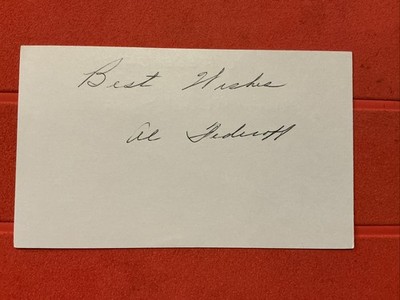 Best Wishes
Al Federoff